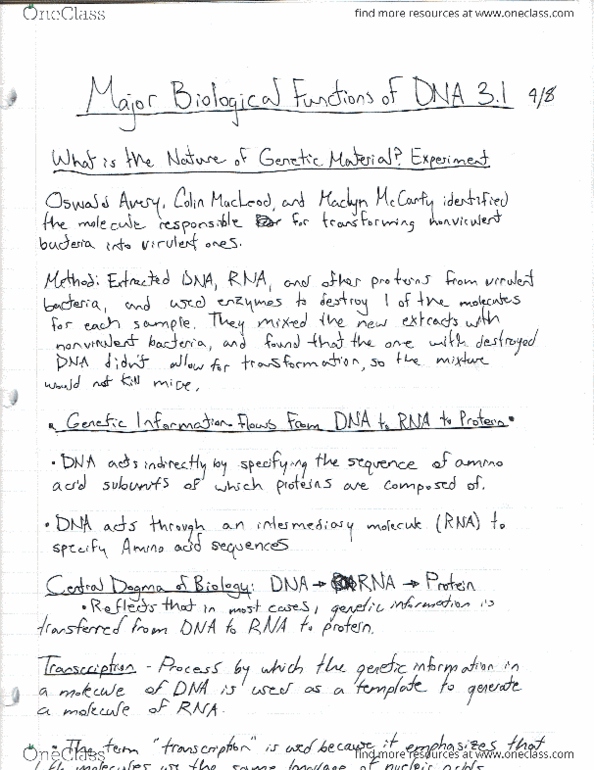 OneClass find more resources at www.oneclass.com
Major Biological Functions of DNA 3.1 9/8
What is the Nature of Genetic Material? Experiment
Oswald Avery, Colin MacLeod, and Maclyn McCarty identified
the molecule responsible for transforming nonvirulent
bacteria into virulent ones.
Method: Extracted DNA, RNA, and other proteins from virulent
bacteria, and used enzymes to destroy 1 of the molecules
for each sample. They mixed the new extracts with
nonvirulent bacteria, and found that the one with destroyed
DNA didn't allow for transformation, so the mixture
would not kill mice.
• Genetic Information Flows From DNA to RNA to Protein •
• DNA acts indirectly by specifying the sequence of amino
acid subunits of which proteins are composed of.
• DNA acts through an intermediary molecule (RNA) to
specify Amino acid sequences
Central Dogma of Biology: DNA → RNA → Protein
• Reflects that in most cases, genetic information is
transferred from DNA to RNA to protein.
Transcription - Process by which the genetic information in
a molecule of DNA is used as a template to generate
a molecule of RNA.
• The term "transcription" is used because it emphasizes that
molecules use the same language of nucleic acids
OneClass find more resources at www.oneclass.com